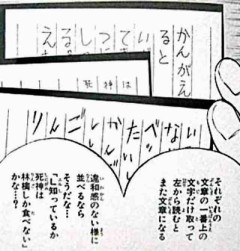 かんがえ
ると
い
て
っ
し
る
え
死神は
りんごしかたべない
それぞれの
文章の一番上の
文字だけ取って
左から読むと
また文章になる
違和感のない様に
並べるなら
そうだな…
「L知っているか
死神は
林檎しか食べない」
かな…?